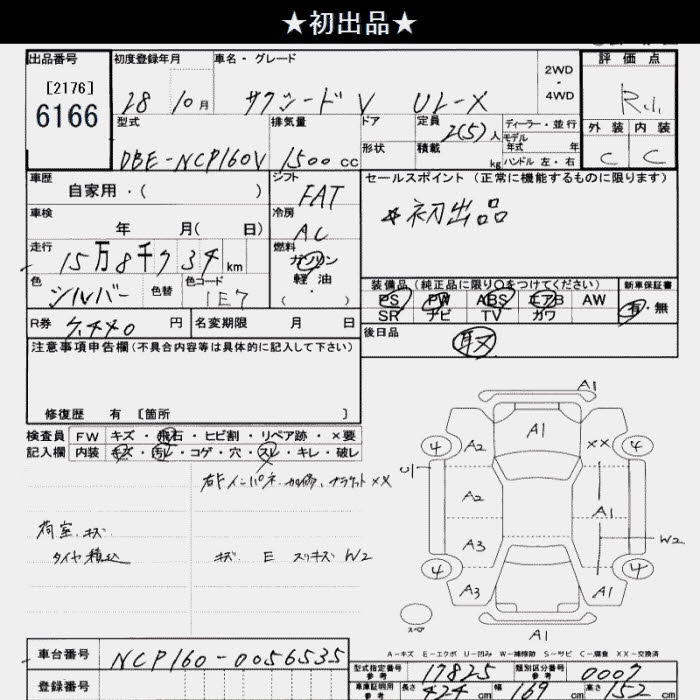 ★初出品★
出品番号 初度登録年月 車名・グレード 2WD・4WD 評価点
[2176]
6166
28 10月 サクシードV UL-X R.1.
型式 排気量 ドア 定員 2(5)人 ディーラー・並行 外装 内装
モデル年式 年
DBE-NCP160V 1500cc 形状 積載 kg ハンドル 左・右 C C
車歴 シフト セールスポイント (正常に機能するものに限ります)
自家用・( ) FAT
☆初出品
車検 冷房
年 月( 日) AC
走行 燃料
15万8千734km ガソリン
軽油
・( )
色 色替 色コード 装備品(純正品に限り○をつけてください) 新車保証書
シルバー 1E7 PS PW ABS エアB AW 有・無
SR ナビ TV カワ
R券 7,440円 名変期限 月 日 後日品
取
注意事項申告欄(不具合内容等は具体的に記入して下さい)
修復歴 有 [箇所 ]
検査員 FW キズ・飛石・ヒビ割・リペア跡・×要
記入欄 内装 キズ・汚レ・コゲ・穴・スレ・キレ・破レ
右Fインパネ加修、ブラケットXX
荷室キズ
タイヤ積込 キズ E スリキズ W2
A1
A1
4 A2 XX 4
A2 A1
A3 W2
4 A3 A1 4
A1
スペア
A-キズ E-エクボ U-凹み W-補修跡 S-サビ C-腐食 XX-交換済
車台番号 NCP160-0056535
登録番号
型式指定番号 参考 17825 類別区分番号 参考 0007
車庫証明用 参考 長さ 424cm 幅 169cm 高さ 152cm